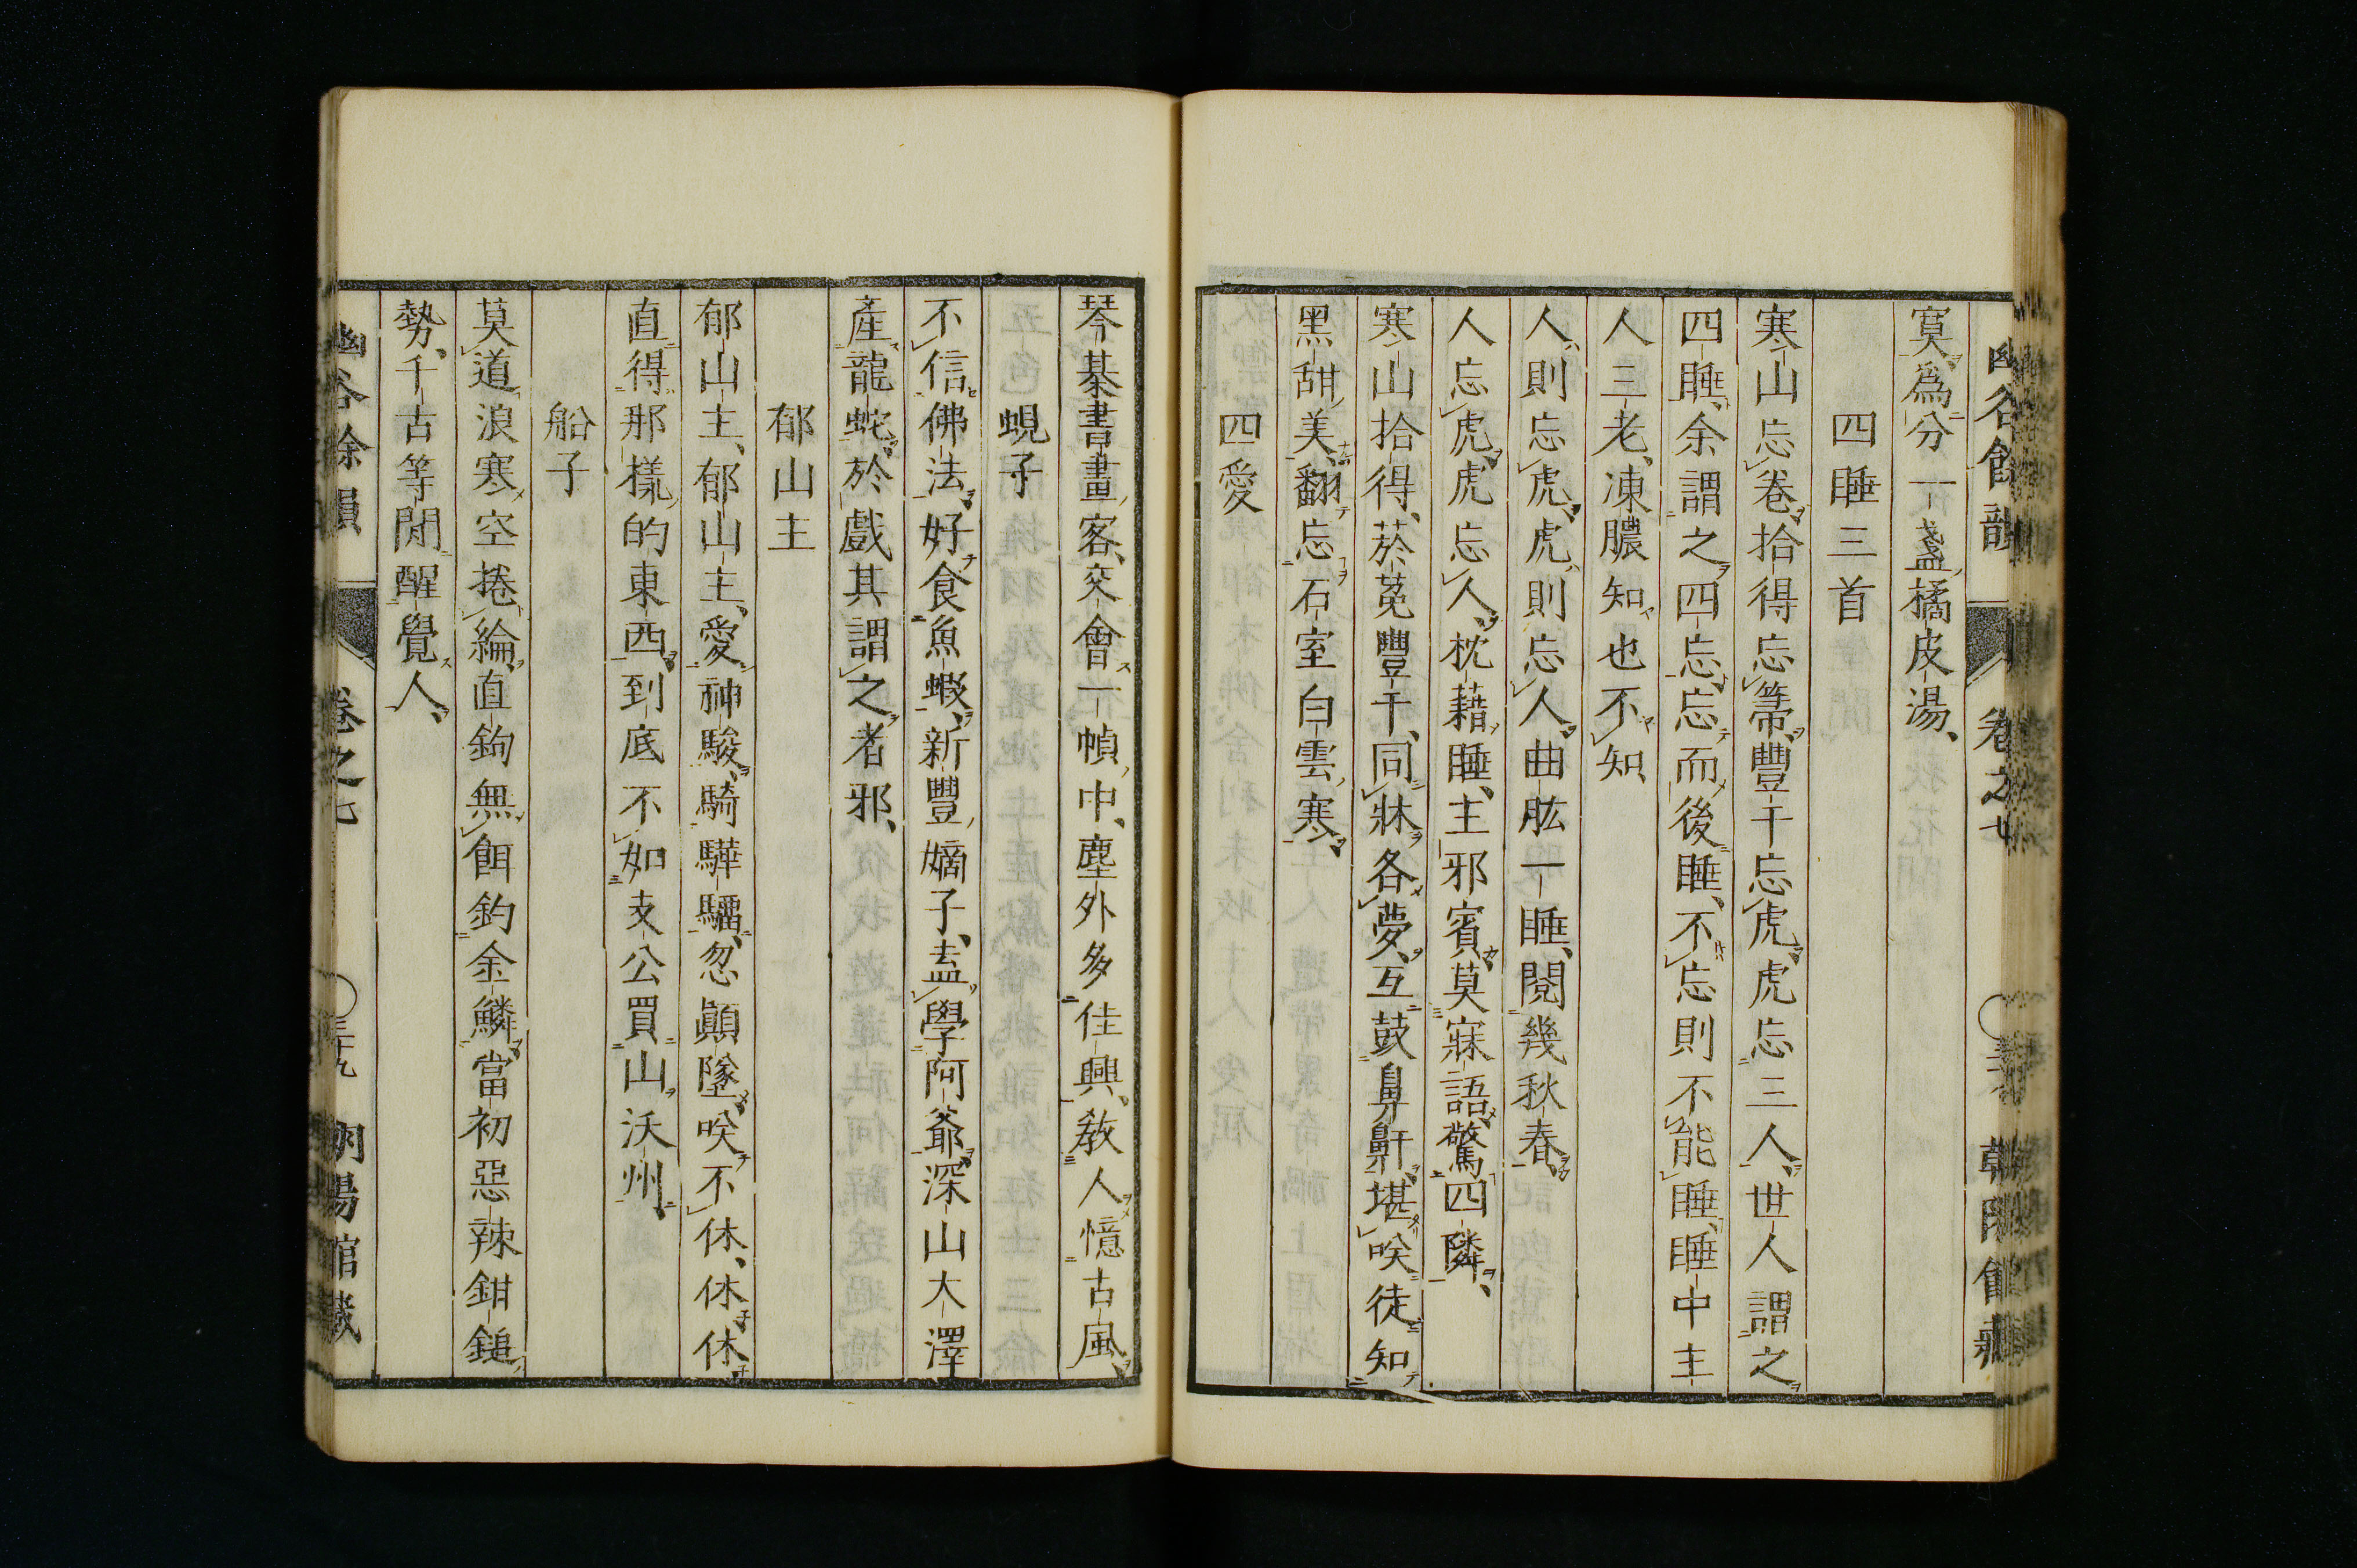 幽谷餘韻 卷之七 朝陽館藏
寞、爲分一盞橘皮湯、
四睡三首
寒山忘卷、拾得忘箒、豐干忘虎、虎忘三人、世人謂之
四睡、余謂之四忘、忘而後睡、不忘則不能睡、睡中主
人三老、凍膿知也不知
人則忘虎、虎則忘人、曲肱一睡、閱幾秋春、
人忘虎、虎忘人、枕藉睡、主邪賓、莫寐語、驚四隣、
寒山拾得、於菟豐干、同牀各夢、互鼓鼻鼾、堪咲徒知
黑甜美、翻忘石室白雲寒、
四愛
琴棊書畫客、交會一幀中、塵外多佳興、敎人憶古風、
蜆子
不信佛法、好食魚蝦、新豐嫡子、盍學阿爺、深山大澤
產龍蛇、於戲其謂之者邪、
郁山主
郁山主、郁山主、愛神駿、騎驊騮、忽顚墜、咲不休、休休、
直得那樣的東西、到底不如支公買山沃州、
船子
莫道浪寒空捲綸、直鉤無餌釣金鱗、當初惡辣鉗鎚
勢、千古等閒醒覺人、
幽谷餘韻 卷之七 〇三十九 朝陽館藏